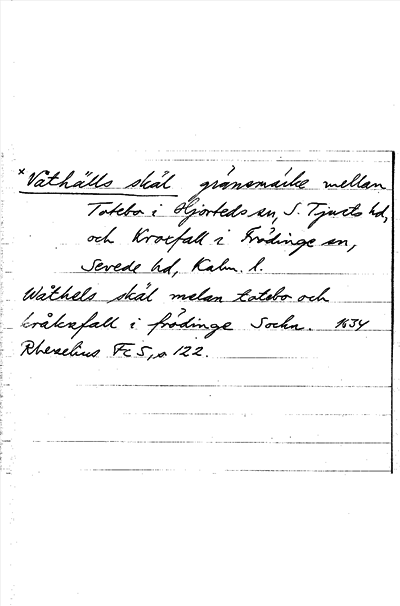 *Våthälls skäl gränsmärke mellan
Totebo i Hjorteds sn, S. Tjusts hd,
och Kroxfall i Frödinge sn,
Sevede hd, Kalm. l.
Wåthels skäl melan totebo och
kråksfall i frödinge Sochn. 1634
Rhezelius Fc5, s 122.